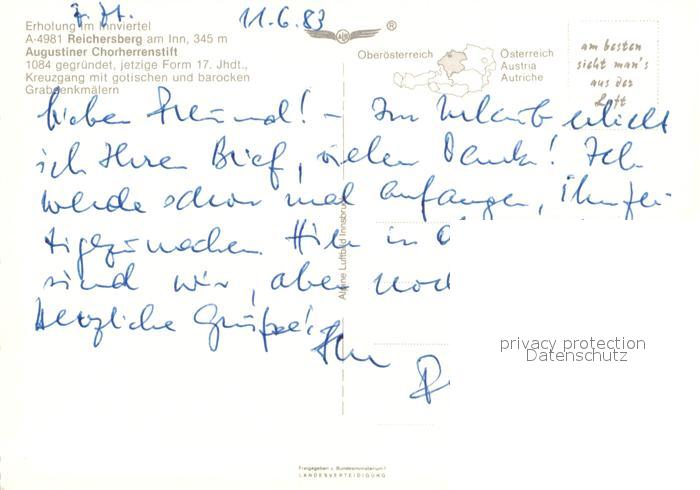 z. Zt. 11.6.83
Erholung im Innviertel
A-4981 Reichersberg am Inn, 345 m
Augustiner Chorherrenstift
1084 gegründet, jetzige Form 17. Jhdt.,
Kreuzgang mit gotischen und barocken
Grabdenkmälern
®
Oberösterreich
Österreich
Austria
Autriche
am besten
sieht man's
aus der
Luft
Lieber Freund! – Im Urlaub erhielt
ich Ihren Brief, vielen Dank! Ich
werde schon mal anfangen, ihn fer-
tigzumachen. Hier in
sind wir, aber noch
Herzliche Grüße!
Ihr
Alpine Luftbild Innsbruck
privacy protection
Datenschutz
Freigegeben v. Bundesministerium f.
LANDESVERTEIDIGUNG